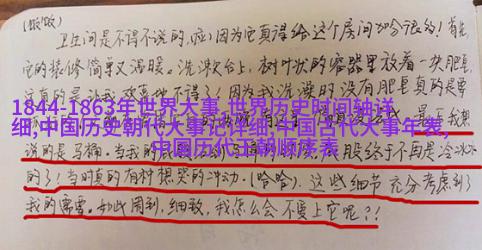 (嗷嗷)
卫生间是不得不说的,啦!因为它真得给这个房间加分很多!首先
它的装修简单又温暖。洗漱台上,树叶状的容器里放着一块肥皂,
这真的是让我
因为我洗澡时没有用肥皂真的是要
1844-1863年世界大事,世界历史时间轴详
细,中国历史朝代大事记详细,中国古代大事年表,
中国历代王朝顺序表
最令我想
说的是马桶。当我的
屁股终于不再是冷冰冰
的了!当时真的有种想哭的冲动,(哈哈)。这些细节充分考虑到了
我的需要。如此周到,细致,我怎么会不爱上它呢?!